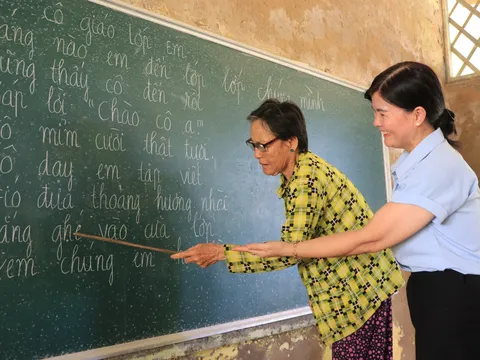 cô giáo lớp em
áng nào em đến lớp
lớp chúng mình
ũng thấy cô đến rồi
áp lời "Chào cô ạ"
ô mỉm cười thật tươi
ô dạy em tập viết
ió đưa thoảng hương nhài
ắng ghé vào cửa lớp
em chúng em